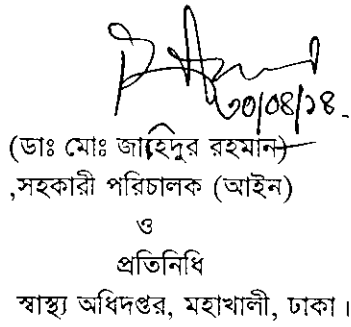 ৩০/০৪/১৪
(ডাঃ মোঃ জাহিদুর রহমান)
,সহকারী পরিচালক (আইন)
ও
প্রতিনিধি
স্বাস্থ্য অধিদপ্তর, মহাখালী, ঢাকা।